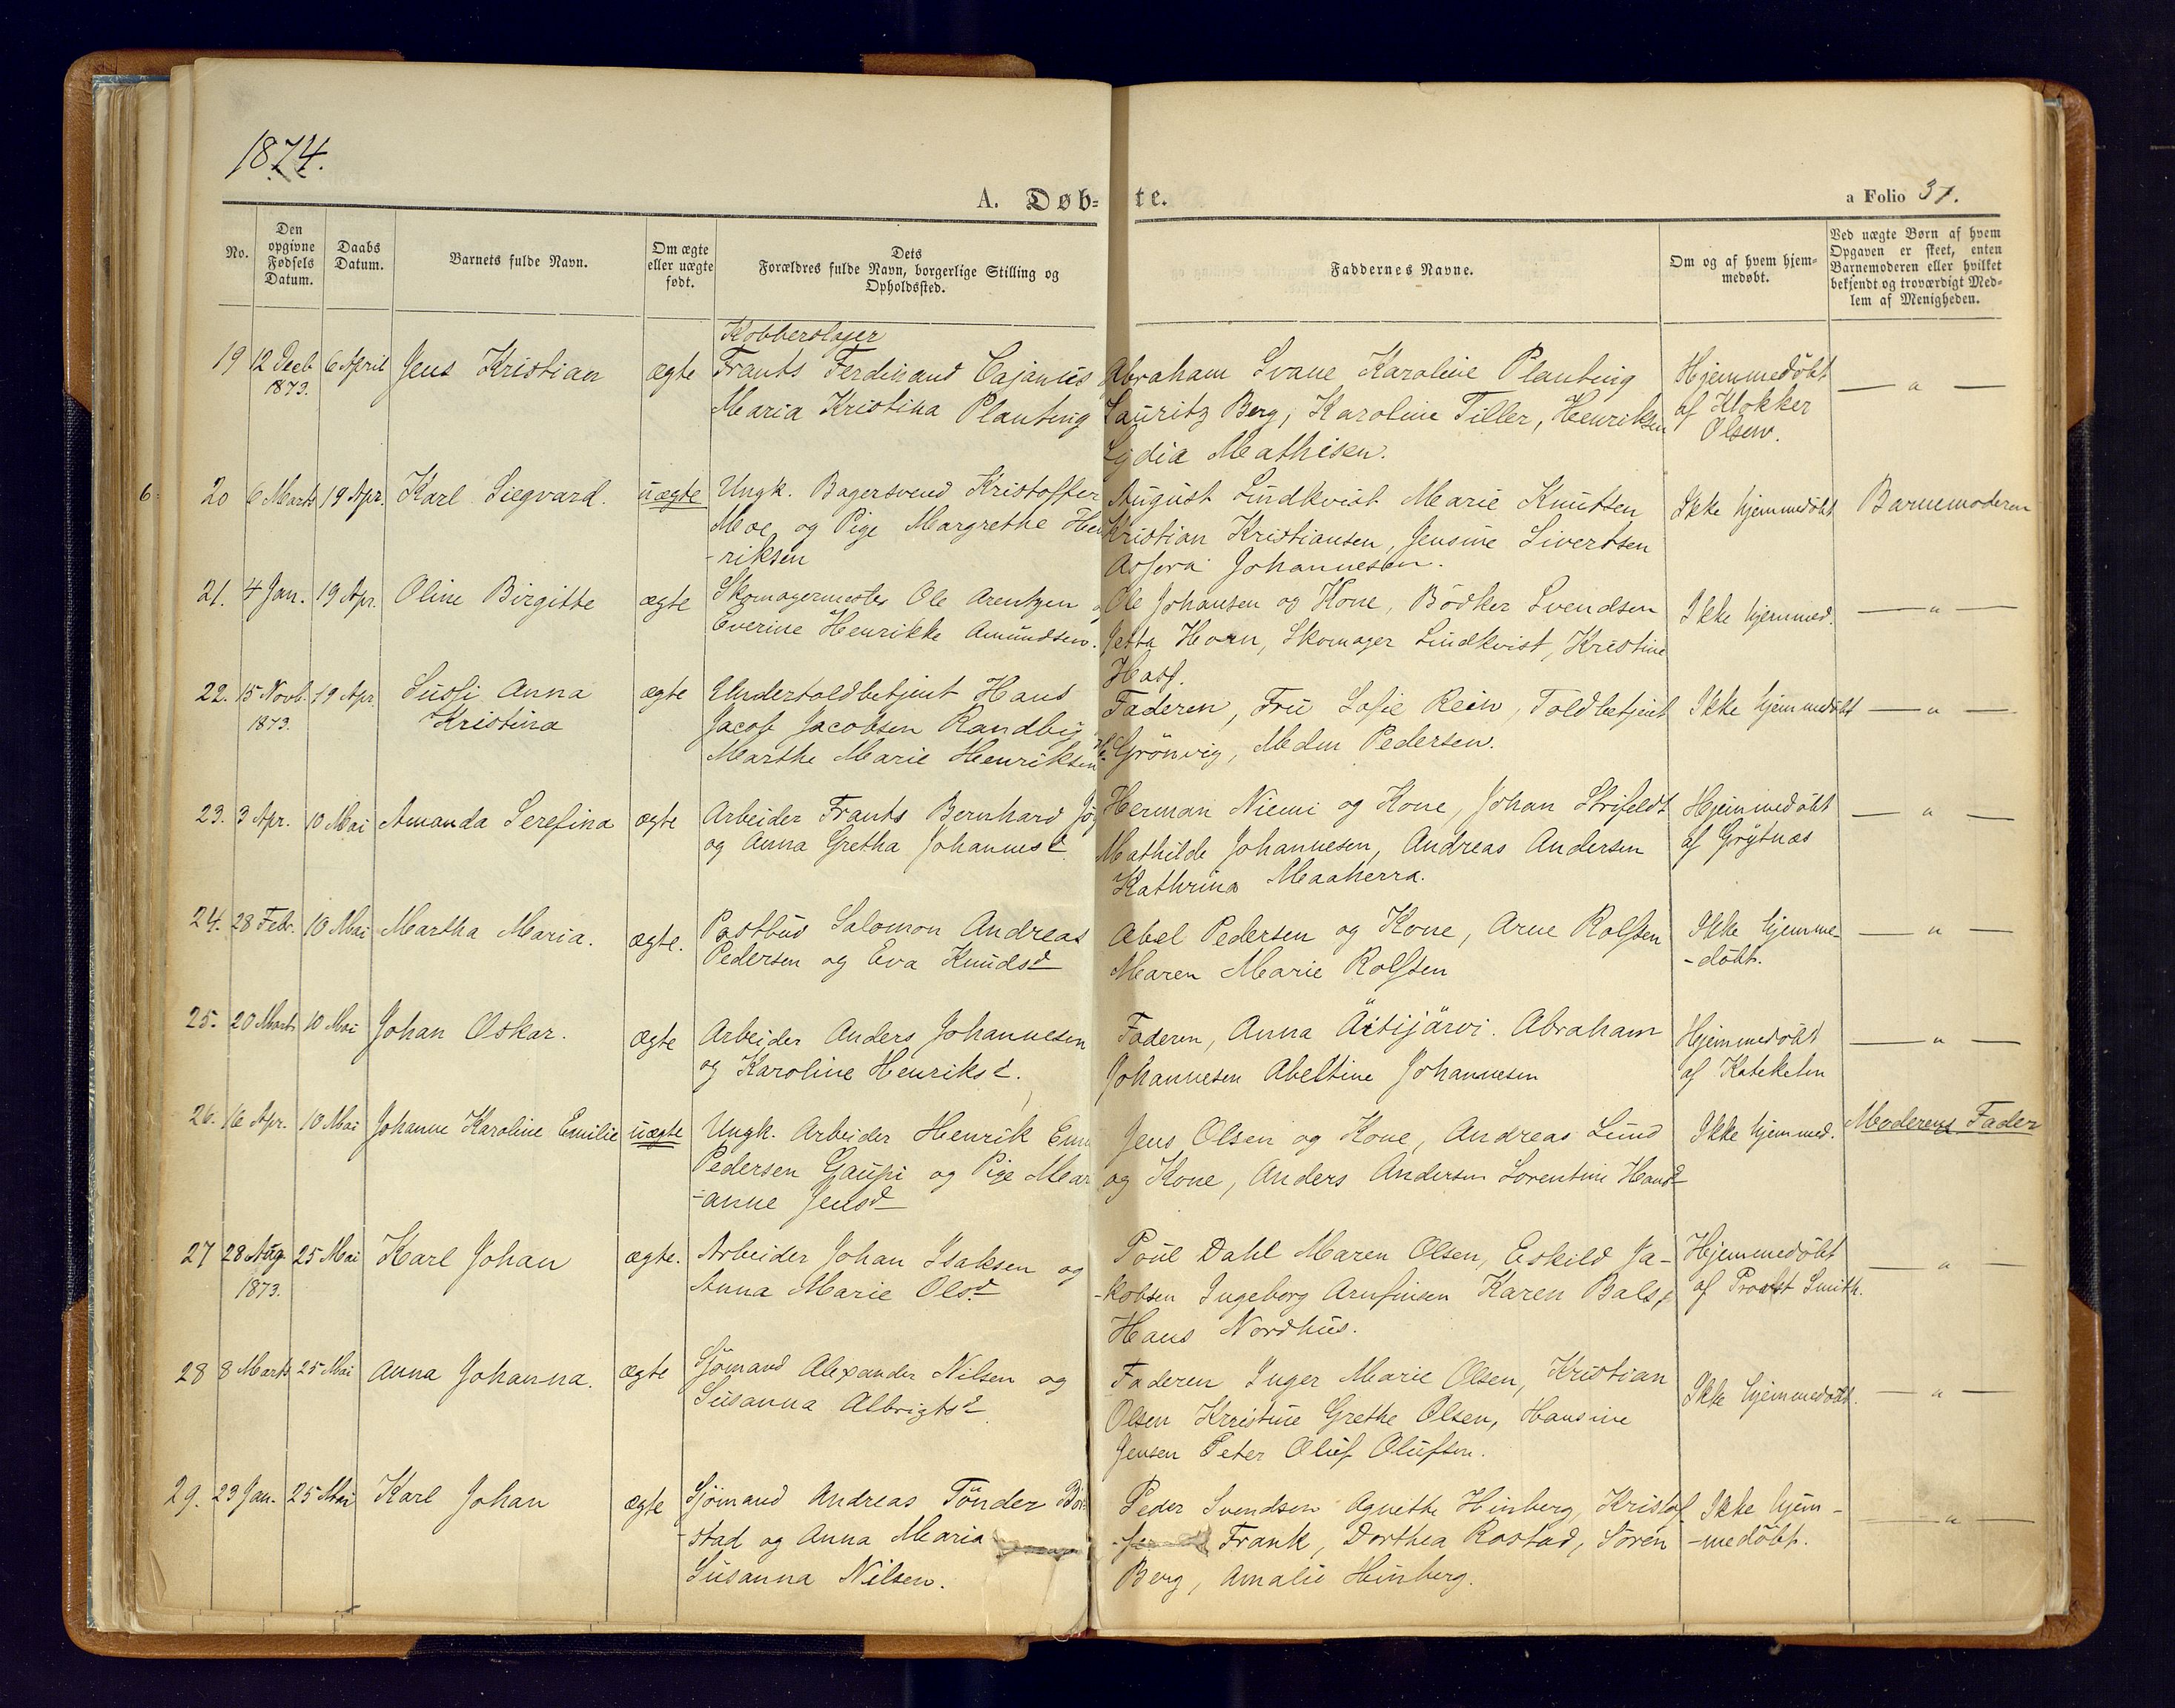 1874.
A. Døb=
te.
a Folio 37.
No.
Den opgivne Fødsels Datum.
Daabs Datum.
Barnets fulde Navn.
Om ægte eller uægte født.
Dets Forældres fulde Navn, borgerlige Stilling og Opholdssted.
Faddernes Navne.
Om og af hvem hjem= medøbt.
Ved uægte Børn af hvem Opgaven er skeet, enten Barnemoderen eller hvilket bekjendt og troværdigt Med= lem af Menigheden.
Kobberslager
19 12 Decb 6 April Jens Kristian ægte Frants Ferdinand Cajanus Abraham Svane Karoline Planting Hjemmedöbt — " —
1873. Maria Kristina Planting Lauritz Berg, Karoline Tiller, Henriksen af Klokker
Lydia Mathisen. Olsen.
6
20 6 Marts 19 Apr. Karl Siegvard. uægte Ungk. Bagersvend Kristoffer August Lindkvist Marie Knutsen Ikke hjemmedöbt Barnemoderen
Moe, og Pige Margrethe Hen Kristian Kristiansen, Jensine Sivertsen
-riksen Johannesen.
21. 4 Jan. 19 Apr. Oline Birgitte ægte Skomagermester Ole Arentzen Ole Johansen og Kone, Bödker Svendsen Ikke hjemmed. — " —
Everine Henrikke Amundsen. Jetta Horn, Skomager Lindkvist, Kristine
22. 15 Novb. 19 Apr Sussi Anna ægte Undertoldbetjent Hans
1873. Kristina Jacob Jacobsen Randbig Faderen, Fru Sofie Rein, Toldbetjent Ikke hjemmedöbt — " —
Marthe Marie Henriksen Grönvig, Meden Pedersen.
23. 3 Apr. 10 Mai Amanda Serefina ægte Arbeider Frants Bernhard Herman Niemi og Kone, Johan Strifeldt Hjemmedöbt — " —
og Anna Gretha Johannesd. Mathilde Johannesen, Andreas Andersen af Grytnæs
Kathrina Maaherra.
24. 28 Febr. 10 Mai Martha Maria. ægte. Postbud Salomon Andreas Abel Pedersen og Kone, Arne Rolfsen Ikke hjemme- — " —
Pedersen og Eva Knudsd Maren Marie Rolfsen -döbt.
25. 20 Marts 10 Mai Johan Oskar. ægte Arbeider Anders Johannesen Faderen, Anna Äitijärvi. Abraham Hjemmedöbt — " —
og Karoline Henriksd. Johannesen Abeltine Johannesen af Kateketen
26. 16 Apr. 10 Mai Johanne Karoline Emilie uægte Ungk. Arbeider Henrik Jens Olsen og Kone, Andreas Lund Ikke hjemmed. Moderens Fader
Pedersen Gaupi og Pige Mar og Kone, Anders Andersen Lorentine Hansd
-anne Jensd
27 28 Aug 25 Mai Karl Johan ægte. Arbeider Johan Isaksen og Poul Dahl Maren Olsen, Eskild Ja- Hjemmedöbt — " —
1873. Anna Marie Olsd -kobsen Ingeborg Arnfinsen Karen Bals af Provst Smith.
Hans Nordhus.
28 8 Marts 25 Mai Anna Johanna. ægte Sjömand Alexander Nilsen og Faderen Inger Marie Olsen, Kristian Ikke hjemmedöbt. — " —
Susanna Albrigtsd. Olsen Kristine Grethe Olsen, Hansine
Jensen Peter Oluf Olufsen.
29. 23 Jan. 25 Mai Karl Johan ægte Sjömand Andreas Tönder Peder Svendsen Agnethe Hinberg, Kristof Ikke hjem- — " —
-stad og Anna Maria Frank, Dorthea Rostad, Sören -medöbt.
Susanna Nilsen. Berg, Amalie Hinberg.